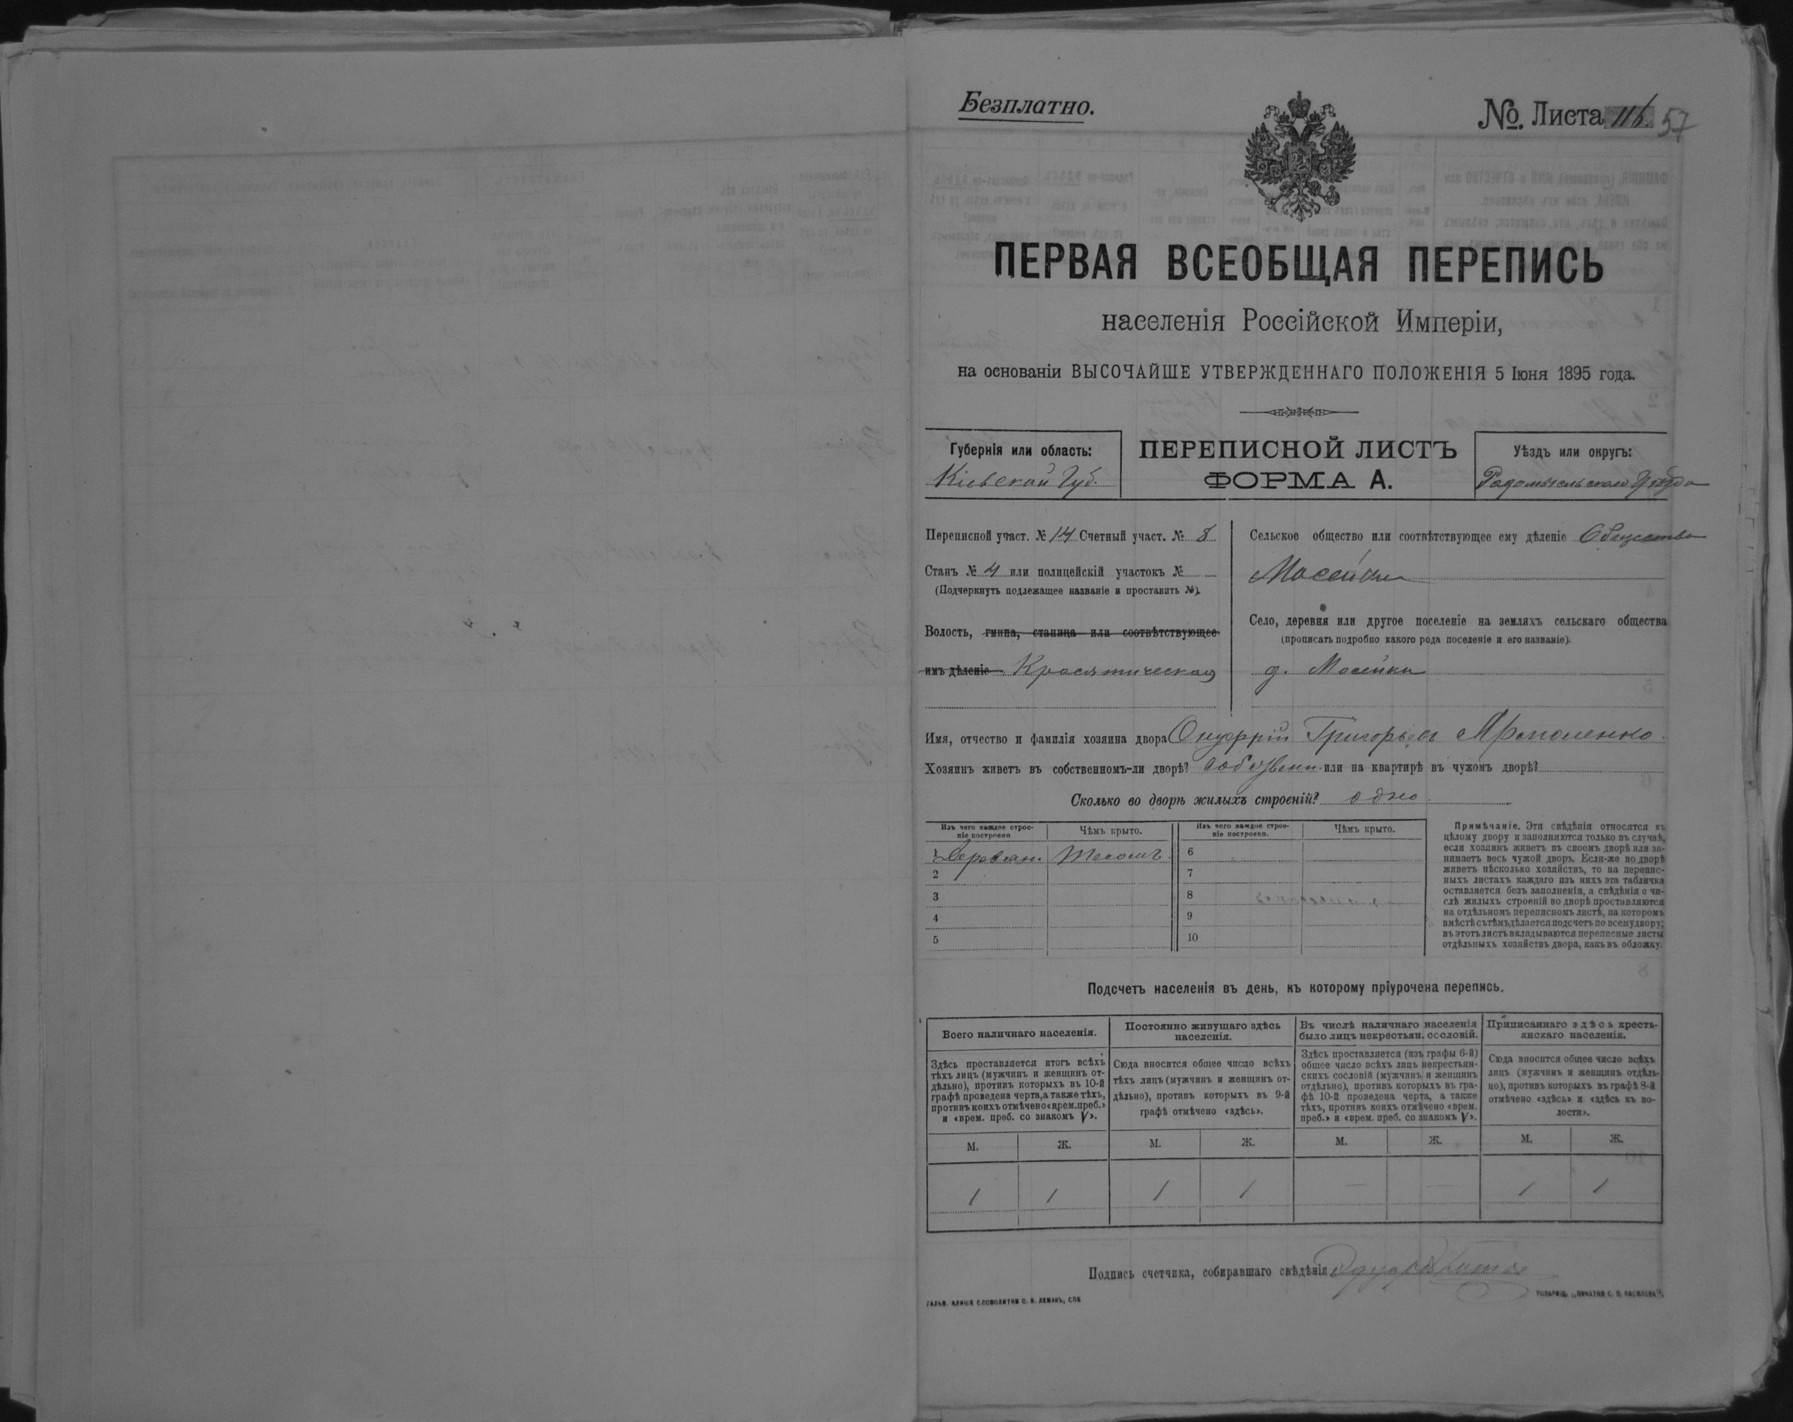 Безплатно.
№. Листа 116. 57
ПЕРВАЯ ВСЕОБЩАЯ ПЕРЕПИСЬ
населенія Россійской Имперіи,
на основаніи ВЫСОЧАЙШЕ УТВЕРЖДЕННАГО ПОЛОЖЕНІЯ 5 Іюня 1895 года.
Губернія или область:
Кіевской Губ.
ПЕРЕПИСНОЙ ЛИСТЪ
ФОРМА А.
Уѣздъ или округъ:
Радомысльскаго Уѣзда
Переписной участ. № 14 Счетный участ. № 8
Станъ № 4 или полицейскій участокъ №
(Подчеркнуть подлежащее названіе и проставить №).
Волость, гмина, станица или соотвѣтствующее
имъ дѣленіе Красятическая
Сельское общество или соотвѣтствующее ему дѣленіе Общество
Мосейки
Село, деревня или другое поселеніе на земляхъ сельскаго общества
(прописать подробно какого рода поселеніе и его названіе).
д. Мосейки
Имя, отчество и фамилія хозяина двора Онуфрій Григорьев
Хозяинъ живетъ въ собственномъ-ли дворѣ? или на квартирѣ въ чужомъ дворѣ?
Сколько во дворѣ жилыхъ строеній? одно.
Изъ чего каждое строеніе построено
Чѣмъ крыто.
Изъ чего каждое строеніе построено.
Чѣмъ крыто.
1 Деревян. Тесомъ
2
3
4
5
6
7
8
9
10
Примѣчаніе. Эти свѣдѣнія относятся къ
цѣлому двору и заполняются только въ случаѣ,
если хозяинъ живетъ въ своемъ дворѣ или за-
нимаетъ весь чужой дворъ. Если-же во дворѣ
живетъ нѣсколько хозяйствъ, то на перепис-
ныхъ листахъ каждаго изъ нихъ эта табличка
оставляется безъ заполненія, а свѣдѣнія о чи-
слѣ жилыхъ строеній во дворѣ проставляются
на отдѣльномъ переписномъ листѣ, на которомъ
вмѣстѣ съ тѣмъ дѣлается подсчетъ по всему двору;
въ этотъ листъ вкладываются переписные листы
отдѣльныхъ хозяйствъ двора, какъ въ обложку.
Подсчетъ населенія въ день, къ которому пріурочена перепись.
Всего наличнаго населенія.
Здѣсь проставляется итогъ всѣхъ
тѣхъ лицъ (мужчинъ и женщинъ от-
дѣльно), противъ которыхъ въ 10-й
графѣ проведена черта, а также тѣхъ,
противъ коихъ отмѣчено «врем. преб.»
и «врем. преб. со знакомъ V».
Постоянно живущаго здѣсь
населенія.
Сюда вносится общее число всѣхъ
тѣхъ лицъ (мужчинъ и женщинъ от-
дѣльно), противъ которыхъ въ 9-й
графѣ отмѣчено «здѣсь».
Въ числѣ наличнаго населенія
было лицъ некрестьян. сословій.
Здѣсь проставляется (изъ графы 6-й)
общее число всѣхъ лицъ некрестьян-
скихъ сословій (мужчинъ и женщинъ
отдѣльно), противъ которыхъ въ гра-
фѣ 10-й проведена черта, а также
тѣхъ, противъ коихъ отмѣчено «врем.
преб.» и «врем. преб. со знакомъ V».
Приписаннаго здѣсь кресть-
янскаго населенія.
Сюда вносится общее число всѣхъ
лицъ (мужчинъ и женщинъ отдѣль-
но), противъ которыхъ въ графѣ 8-й
отмѣчено «здѣсь» и «здѣсь къ во-
лости».
М. Ж. М. Ж. М. Ж. М. Ж.
1 1 1 1 — — 1 1
Подпись счетчика, собиравшаго свѣдѣнія